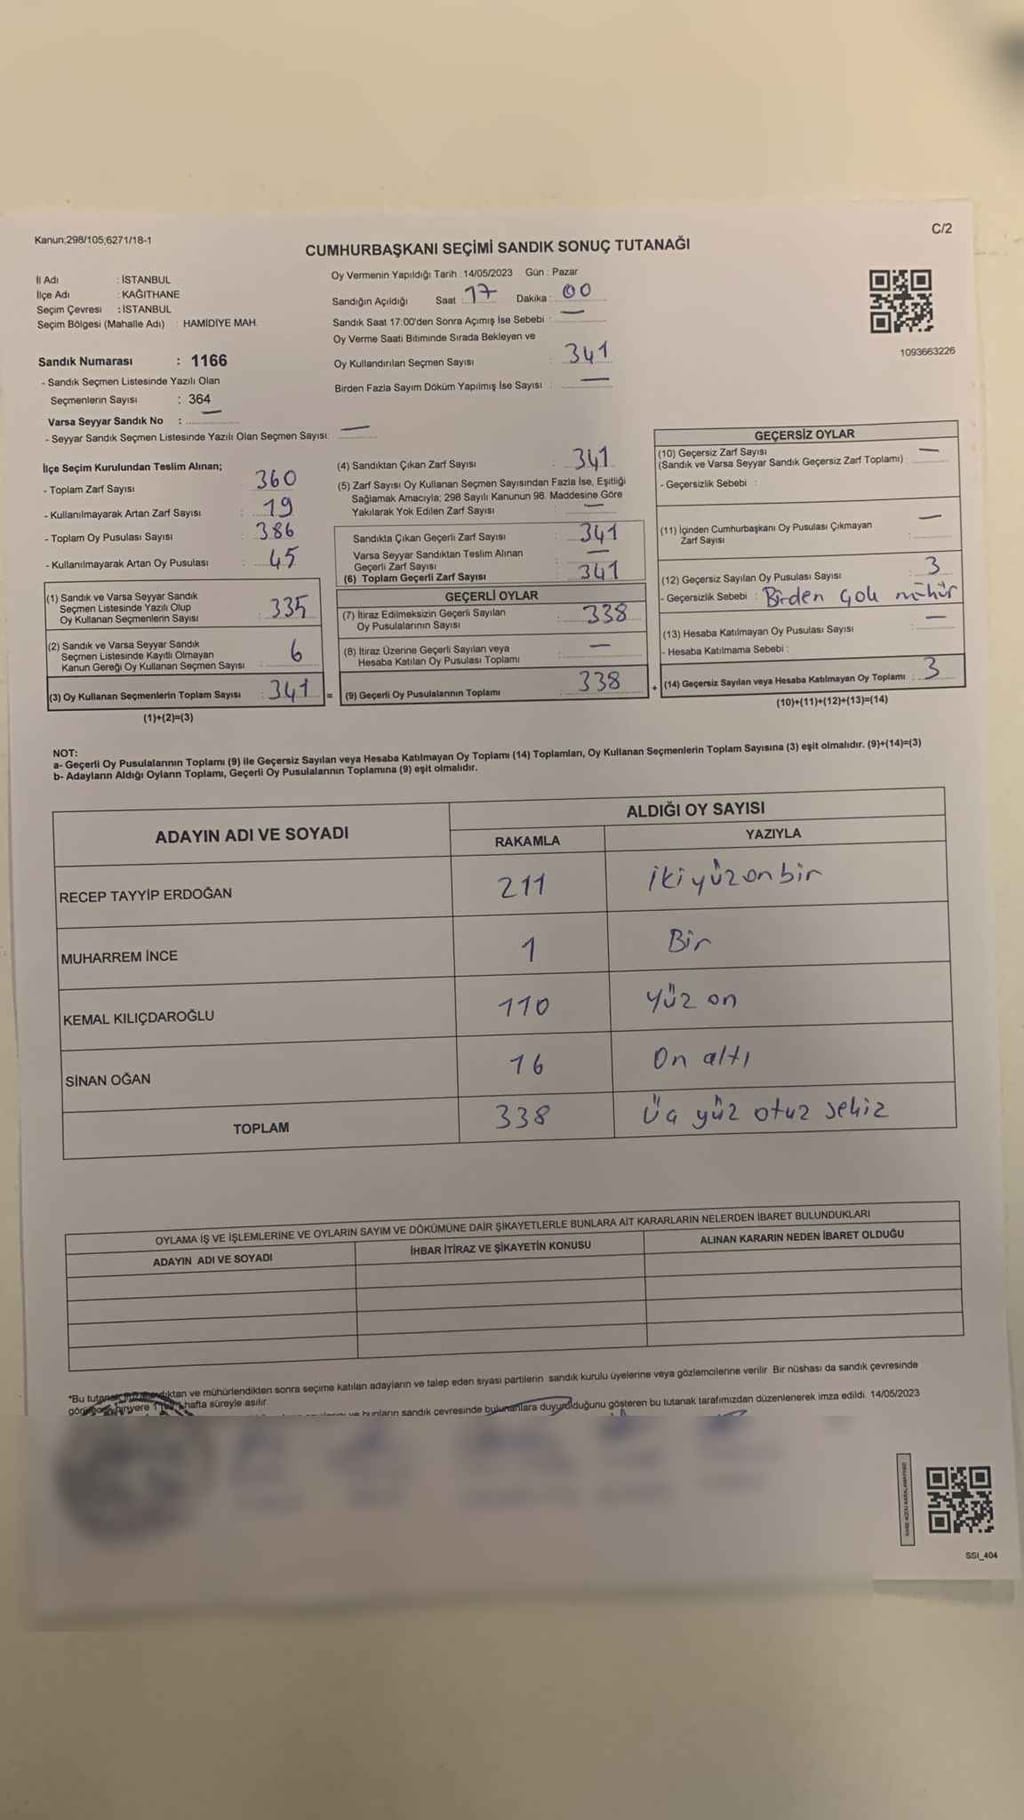 Kanun;298/105,6271/18-1
C/2
CUMHURBAŞKANI SEÇİMİ SANDIK SONUÇ TUTANAĞI
İl Adı : İSTANBUL
İlçe Adı : KAĞITHANE
Seçim Çevresi : İSTANBUL
Seçim Bölgesi (Mahalle Adı) : HAMİDİYE MAH.
Sandık Numarası : 1166
- Sandık Seçmen Listesinde Yazılı Olan
Seçmenlerin Sayısı : 364
Varsa Seyyar Sandık No : —
- Seyyar Sandık Seçmen Listesinde Yazılı Olan Seçmen Sayısı: —
Oy Vermenin Yapıldığı Tarih : 14/05/2023 Gün : Pazar
Sandığın Açıldığı Saat : 17 Dakika : 00
Sandık Saat 17:00'den Sonra Açımış İse Sebebi : —
Oy Verme Saati Bitiminde Sırada Bekleyen ve
Oy Kullandırılan Seçmen Sayısı : 341
Birden Fazla Sayım Döküm Yapılmış İse Sayısı : —
1093663226
İlçe Seçim Kurulundan Teslim Alınan;
- Toplam Zarf Sayısı : 360
- Kullanılmayarak Artan Zarf Sayısı : 19
- Toplam Oy Pusulası Sayısı : 386
- Kullanılmayarak Artan Oy Pusulası : 45
(1) Sandık ve Varsa Seyyar Sandık
Seçmen Listesinde Yazılı Olup
Oy Kullanan Seçmenlerin Sayısı : 335
(2) Sandık ve Varsa Seyyar Sandık
Seçmen Listesinde Kayıtlı Olmayan
Kanun Gereği Oy Kullanan Seçmen Sayısı : 6
(3) Oy Kullanan Seçmenlerin Toplam Sayısı : 341 =
(1)+(2)=(3)
(4) Sandıktan Çıkan Zarf Sayısı : 341
(5) Zarf Sayısı Oy Kullanan Seçmen Sayısından Fazla İse, Eşitliği
Sağlamak Amacıyla; 298 Sayılı Kanunun 98. Maddesine Göre
Yakılarak Yok Edilen Zarf Sayısı : —
Sandıkta Çıkan Geçerli Zarf Sayısı : 341
Varsa Seyyar Sandıktan Teslim Alınan
Geçerli Zarf Sayısı : —
(6) Toplam Geçerli Zarf Sayısı : 341
GEÇERLİ OYLAR
(7) İtiraz Edilmeksizin Geçerli Sayılan
Oy Pusulalarının Sayısı : 338
(8) İtiraz Üzerine Geçerli Sayılan veya
Hesaba Katılan Oy Pusulası Toplamı : —
(9) Geçerli Oy Pusulalarının Toplamı : 338 +
GEÇERSİZ OYLAR
(10) Geçersiz Zarf Sayısı
(Sandık ve Varsa Seyyar Sandık Geçersiz Zarf Toplamı) : —
- Geçersizlik Sebebi :
(11) İçinden Cumhurbaşkanı Oy Pusulası Çıkmayan
Zarf Sayısı : —
(12) Geçersiz Sayılan Oy Pusulası Sayısı : 3
- Geçersizlik Sebebi : Birden çok mühür
(13) Hesaba Katılmayan Oy Pusulası Sayısı : —
- Hesaba Katılmama Sebebi :
(14) Geçersiz Sayılan veya Hesaba Katılmayan Oy Toplamı : 3
(10)+(11)+(12)+(13)=(14)
NOT:
a- Geçerli Oy Pusulalarının Toplamı (9) ile Geçersiz Sayılan veya Hesaba Katılmayan Oy Toplamı (14) Toplamları, Oy Kullanan Seçmenlerin Toplam Sayısına (3) eşit olmalıdır. (9)+(14)=(3)
b- Adayların Aldığı Oyların Toplamı, Geçerli Oy Pusulalarının Toplamına (9) eşit olmalıdır.
ADAYIN ADI VE SOYADI
ALDIĞI OY SAYISI
RAKAMLA YAZIYLA
RECEP TAYYİP ERDOĞAN 211 iki yüz on bir
MUHARREM İNCE 1 Bir
KEMAL KILIÇDAROĞLU 110 Yüz on
SİNAN OĞAN 16 On altı
TOPLAM 338 Üç yüz otuz sekiz
OYLAMA İŞ VE İŞLEMLERİNE VE OYLARIN SAYIM VE DÖKÜMÜNE DAİR ŞİKAYETLERLE BUNLARA AİT KARARLARIN NELERDEN İBARET BULUNDUKLARI
ADAYIN ADI VE SOYADI İHBAR İTİRAZ VE ŞİKAYETİN KONUSU ALINAN KARARIN NEDEN İBARET OLDUĞU
*Bu ve mühürlendikten sonra seçime katılan adayların ve talep eden siyasi partilerin sandık kurulu üyelerine veya gözlemcilerine verilir. Bir nüshası da sandık çevresinde
hafta süreyle asılır.
ve bunların sandık çevresinde bulunanlara duyurulduğunu gösteren bu tutanak tarafımızdan düzenlenerek imza edildi. 14/05/2023
SSI_404